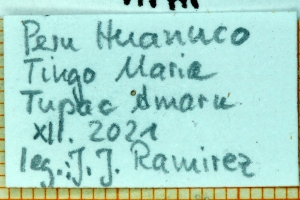 Peru Huanuco
Tingo Maria
Tupac Amaru
XII. 2021
leg.: J. J. Ramirez